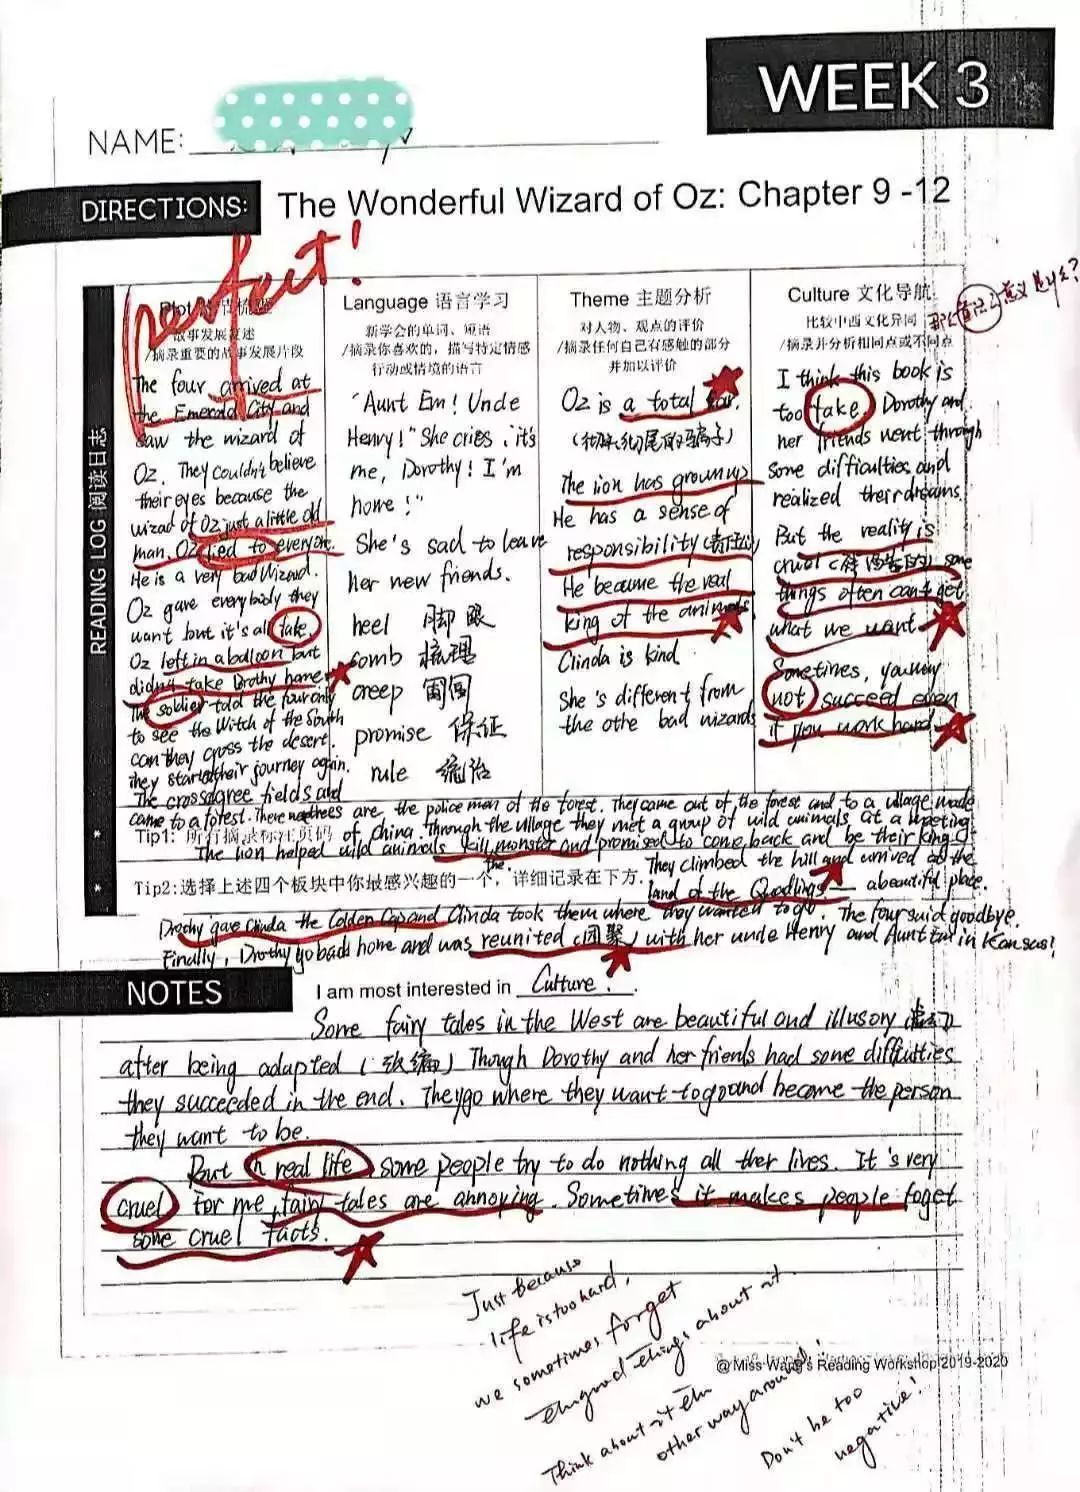 WEEK 3
NAME:
DIRECTIONS: The Wonderful Wizard of Oz: Chapter 9 -12
perfect!
READING LOG 阅读日志
Plot
故事发展复述
/摘录重要的故事发展片段
The four arrived at
the Emerald City and
saw the wizard of
Oz. They couldn't believe
their eyes because the
wizad of Oz just a little old
man. Oz lied to everyone.
He is a very bad Wizard.
Oz gave everybody they
want but it's all fake.
Oz left in a balloon but
didn't take Drothy home
The soldier told the four only
to see the Witch of the South
can they cross the desert.
they started their journey again.
The cross fields and
came to a forest. There trees are the police men of the forest. They came out of the forest and to a village made
of China. Through the village they met a group of wild animals at a meeting
The lion helped wild animals kill monster and promised to come back and be their king.
the
They climbed the hill and arrived at the
land of the Quadlings — a beautiful place.
Drothy gave Clinda the Golden Cap and Clinda took them where they wanted to go. The four said goodbye.
Finally, Drothy go back home and was reunited (团聚) with her uncle Henry and Aunt Em in Kansas!
Language 语言学习
新学会的单词、短语
/摘录你喜欢的，描写特定情感
行动或情境的语言
"Aunt Em! Uncle
Henry!" She cries, it's
me, Dorothy! I'm
home!"
She's sad to leave
her new friends.
heel 脚跟
comb 梳理
creep
promise 保证
rule 统治
Theme 主题分析
对人物、观点的评价
/摘录任何自己有感触的部分
并加以评价
Oz is a total liar.
(彻头彻尾的骗子)
The lion has grown up
He has a sense of
responsibility (责任心)
He became the real
king of the animals
Clinda is kind.
She's different from
the othe bad wizards
Culture 文化导航
比较中西文化异同
/摘录并分析相同点或不同点
那么童话的意义是什么?
I think this book is
too fake. Dorothy and
her friends went through
some difficulties and
realized their dreams.
But the reality is
cruel (残酷的) some
things often can't get
what we want.
Sometimes, you may
not succeed even
if you work hard.
Tip1: 所有摘录标注页码
Tip2:选择上述四个板块中你最感兴趣的一个，详细记录在下方.
NOTES
I am most interested in Culture.
Some fairy tales in the West are beautiful and illusory (虚幻)
after being adapted (改编) Though Dorothy and her friends had some difficulties
they succeeded in the end. They go where they want to go and become the person
they want to be.
But in real life some people try to do nothing all ther lives. It's very
cruel For me, fairy tales are annoying. Sometimes it makes people foget
some cruel facts.
Just because
life is too hard,
we sometimes forget
the good things about it.
Think about it the
other way around!
Don't be too
negative!
@ Miss Wang's Reading Workshop 2019-2020